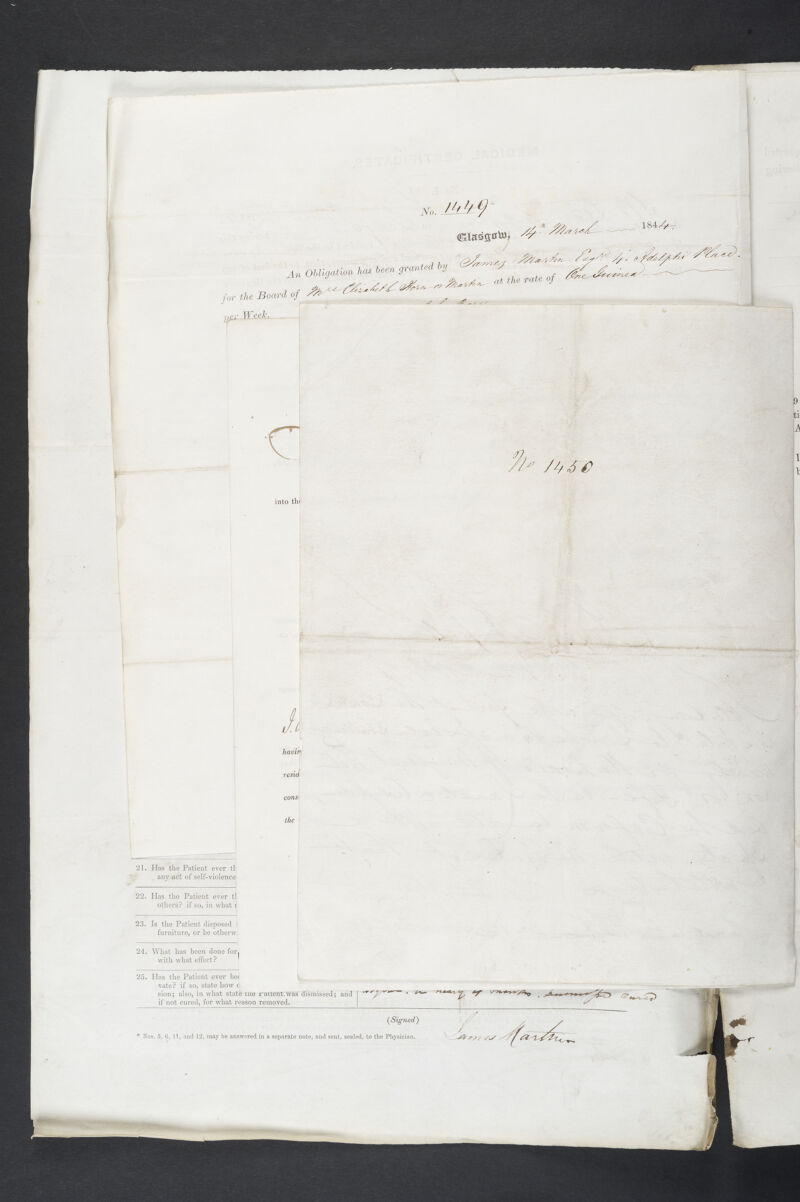 No. 1449
Glasgow, 14th March 1844.
An Obligation has been granted by James Martin Esqre 4. Adelphi Place.
for the Board of Mrs Elizabeth or Martin at the rate of One Guinea
per Week.
No 1450
into the
having
resid
cons
the
21. Has the Patient ever th
any act of self-violence
22. Has the Patient ever t
others? if so, in what
23. Is the Patient disposed
furniture, or be otherw
24. What has been done for
with what effect?
25. Has the Patient ever be
vate? if so, state how
sion; also, in what state the Patient was dismissed; and
if not cured, for what reason removed.
months. dismissed cured
(Signed)
James Martin
* Nos. 5, 6, 11, and 12, may be answered in a separate note, and sent, sealed, to the Physician.